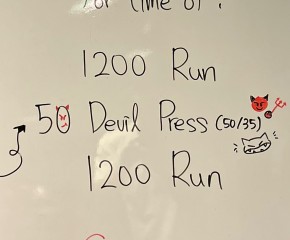 For time of :
1200 Run
50 Devil Press (50/35)
1200 Run